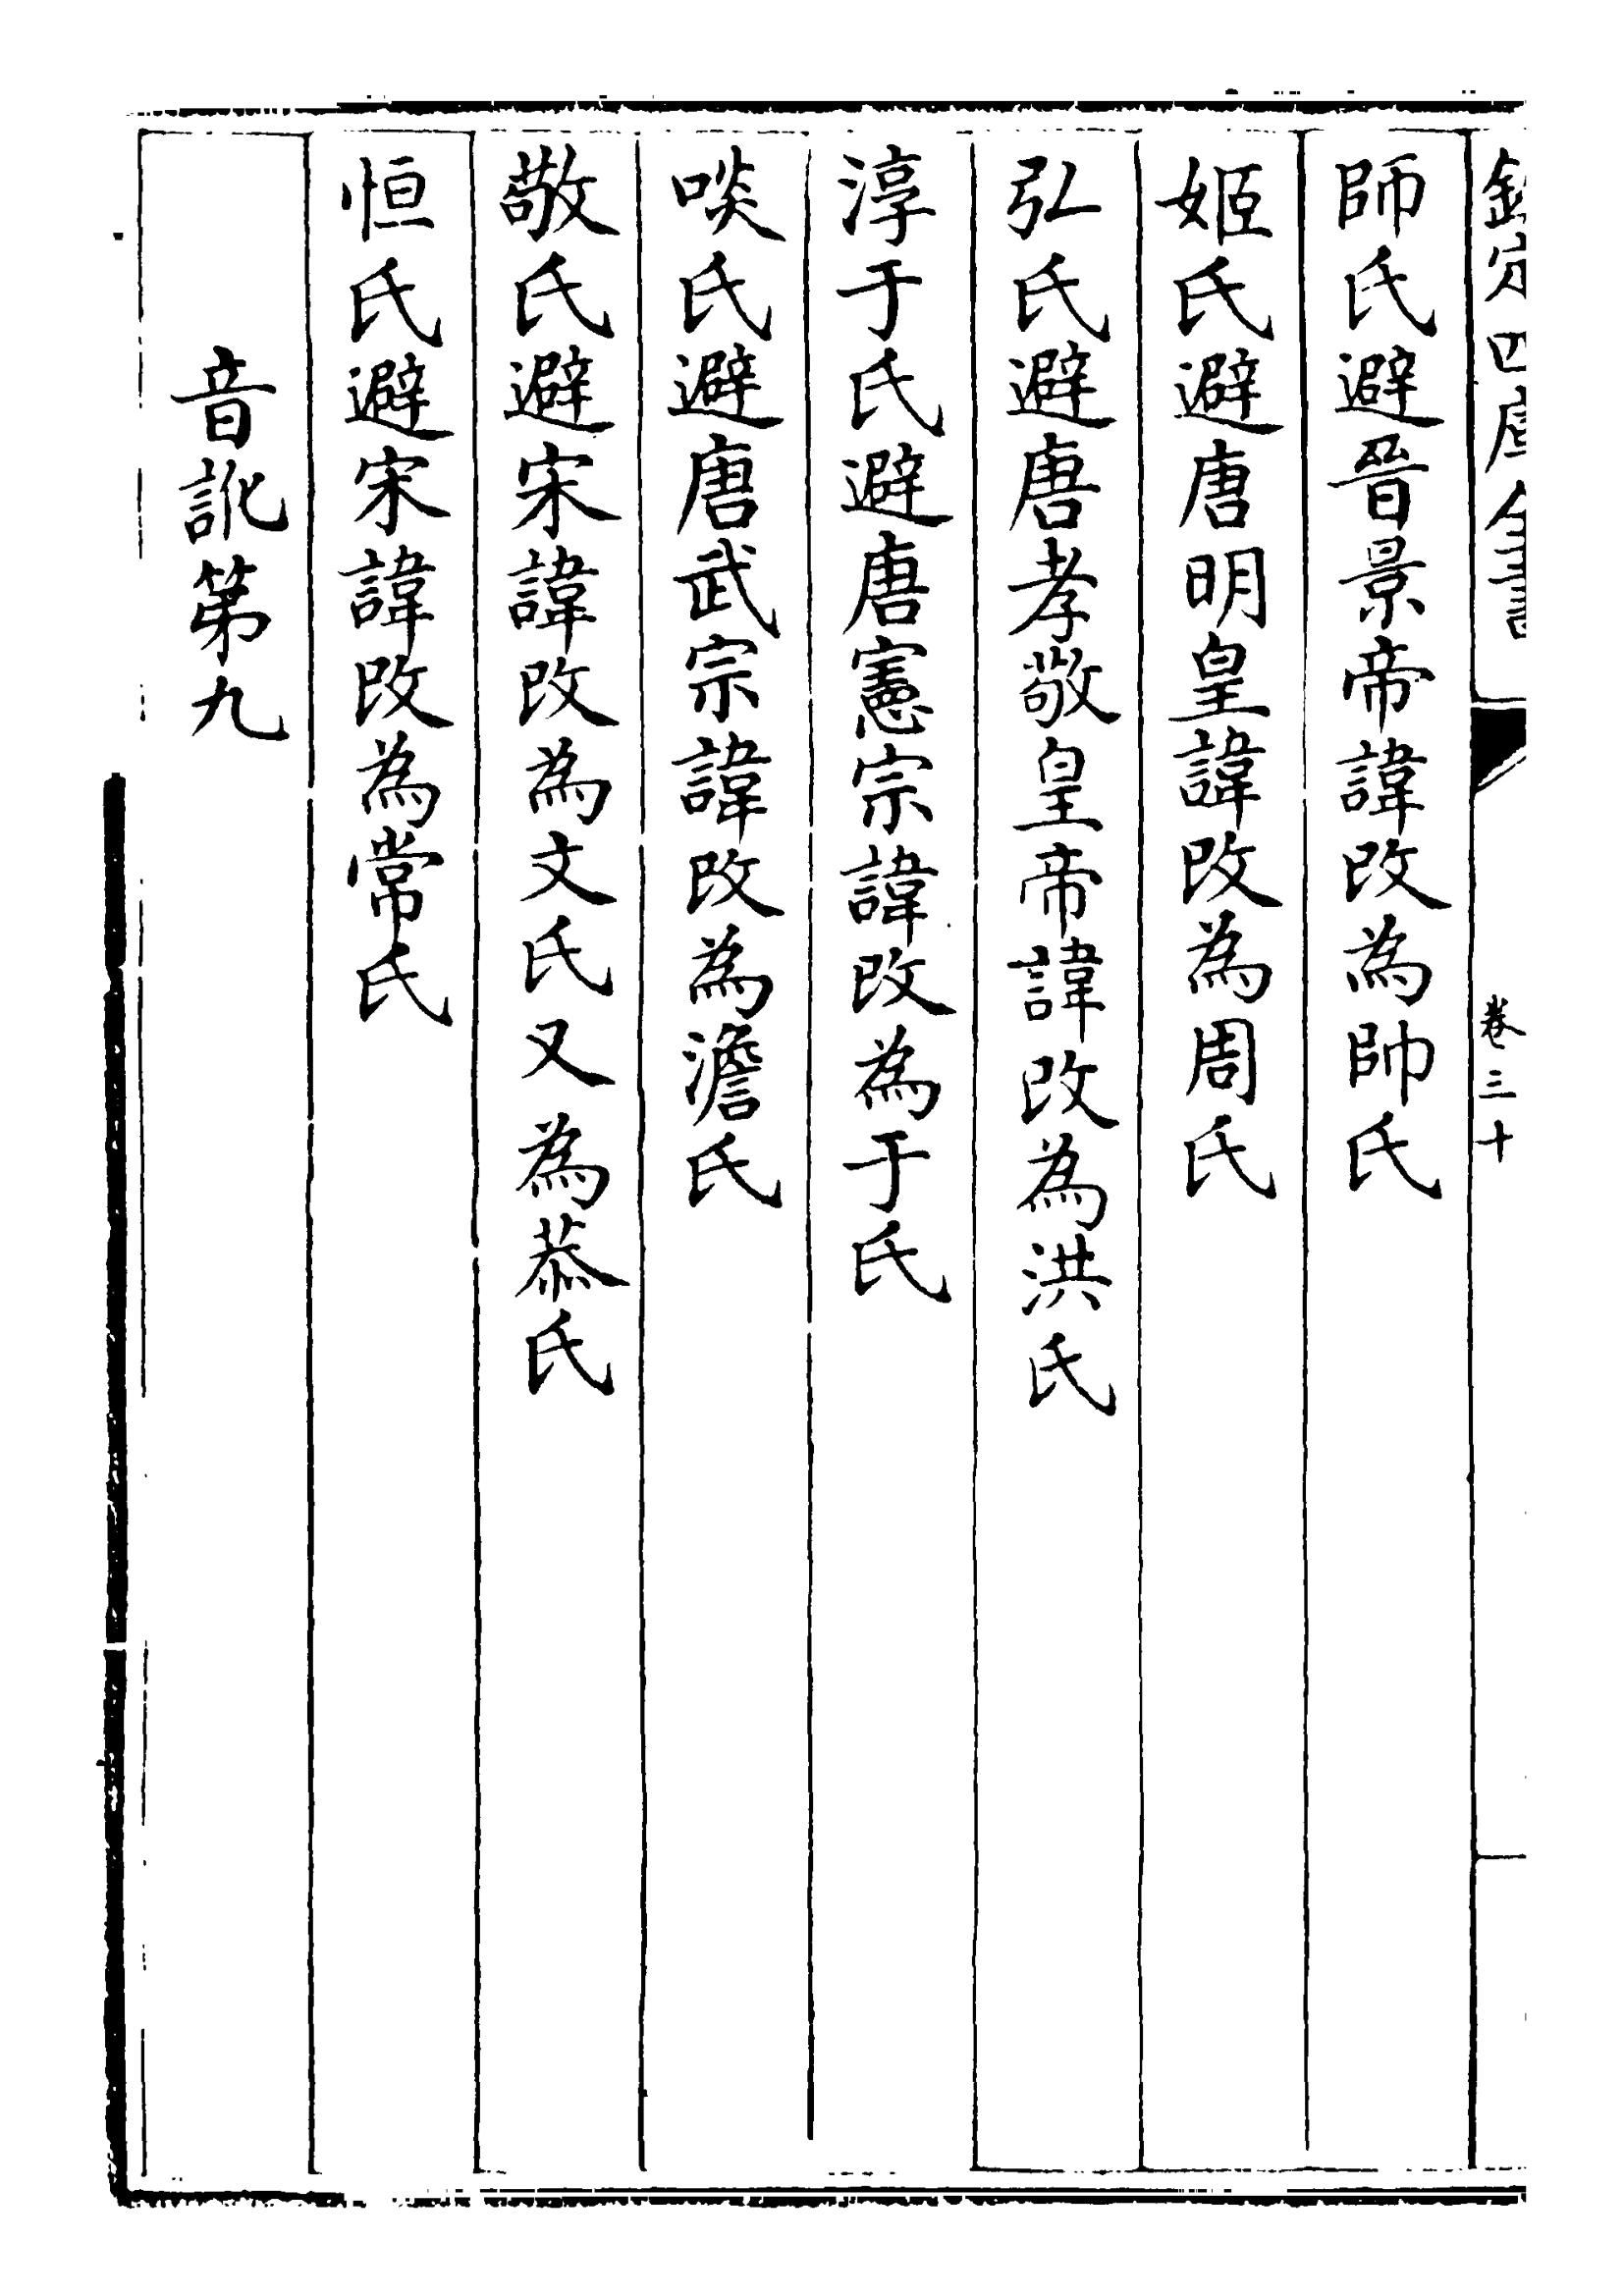 欽定四庫全書
卷三十
師氏避晉景帝諱改為帥氏
姬氏避唐明皇諱改為周氏
弘氏避唐孝敬皇帝諱改為洪氏
淳于氏避唐憲宗諱改為于氏
啖氏避唐武宗諱改為澹氏
敬氏避宋諱改為文氏又為恭氏
恒氏避宋諱改為常氏
音訛第九